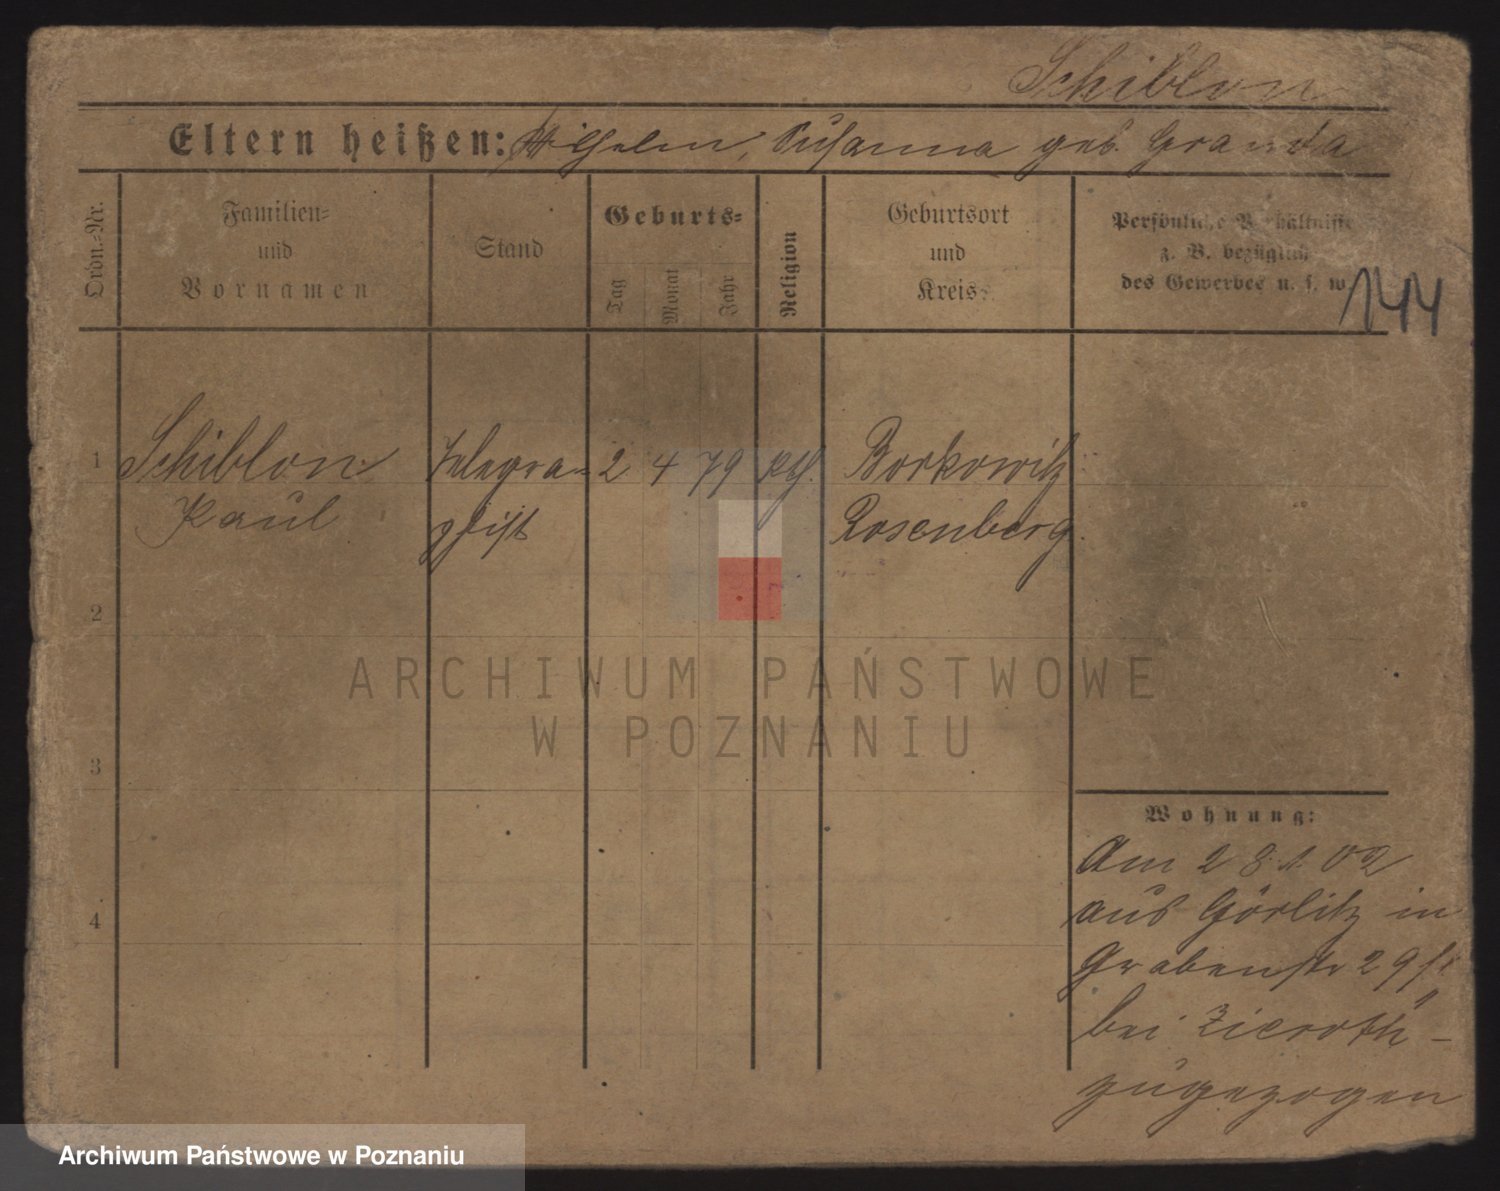 Schiblon
Eltern heißen: Wilhelm, Susanna geb. Granda
Ordn.-Nr.
Familien-
und
Vornamen
Stand
Geburts-
Tag
Monat
Jahr
Religion
Geburtsort
und
Kreis
Persönliche Verhältnisse
z. B. bezüglich
des Gewerbes u. s. w.
144
1 Schiblon Telegra- 2 4 79 kth. Borkowitz
Paul phist Rosenberg
2
3
4
Wohnung:
Am 28.1.02
aus Görlitz in
Grabenstr 29
bei Zieroth
zugezogen
ARCHIWUM PAŃSTWOWE
W POZNANIU
Archiwum Państwowe w Poznaniu